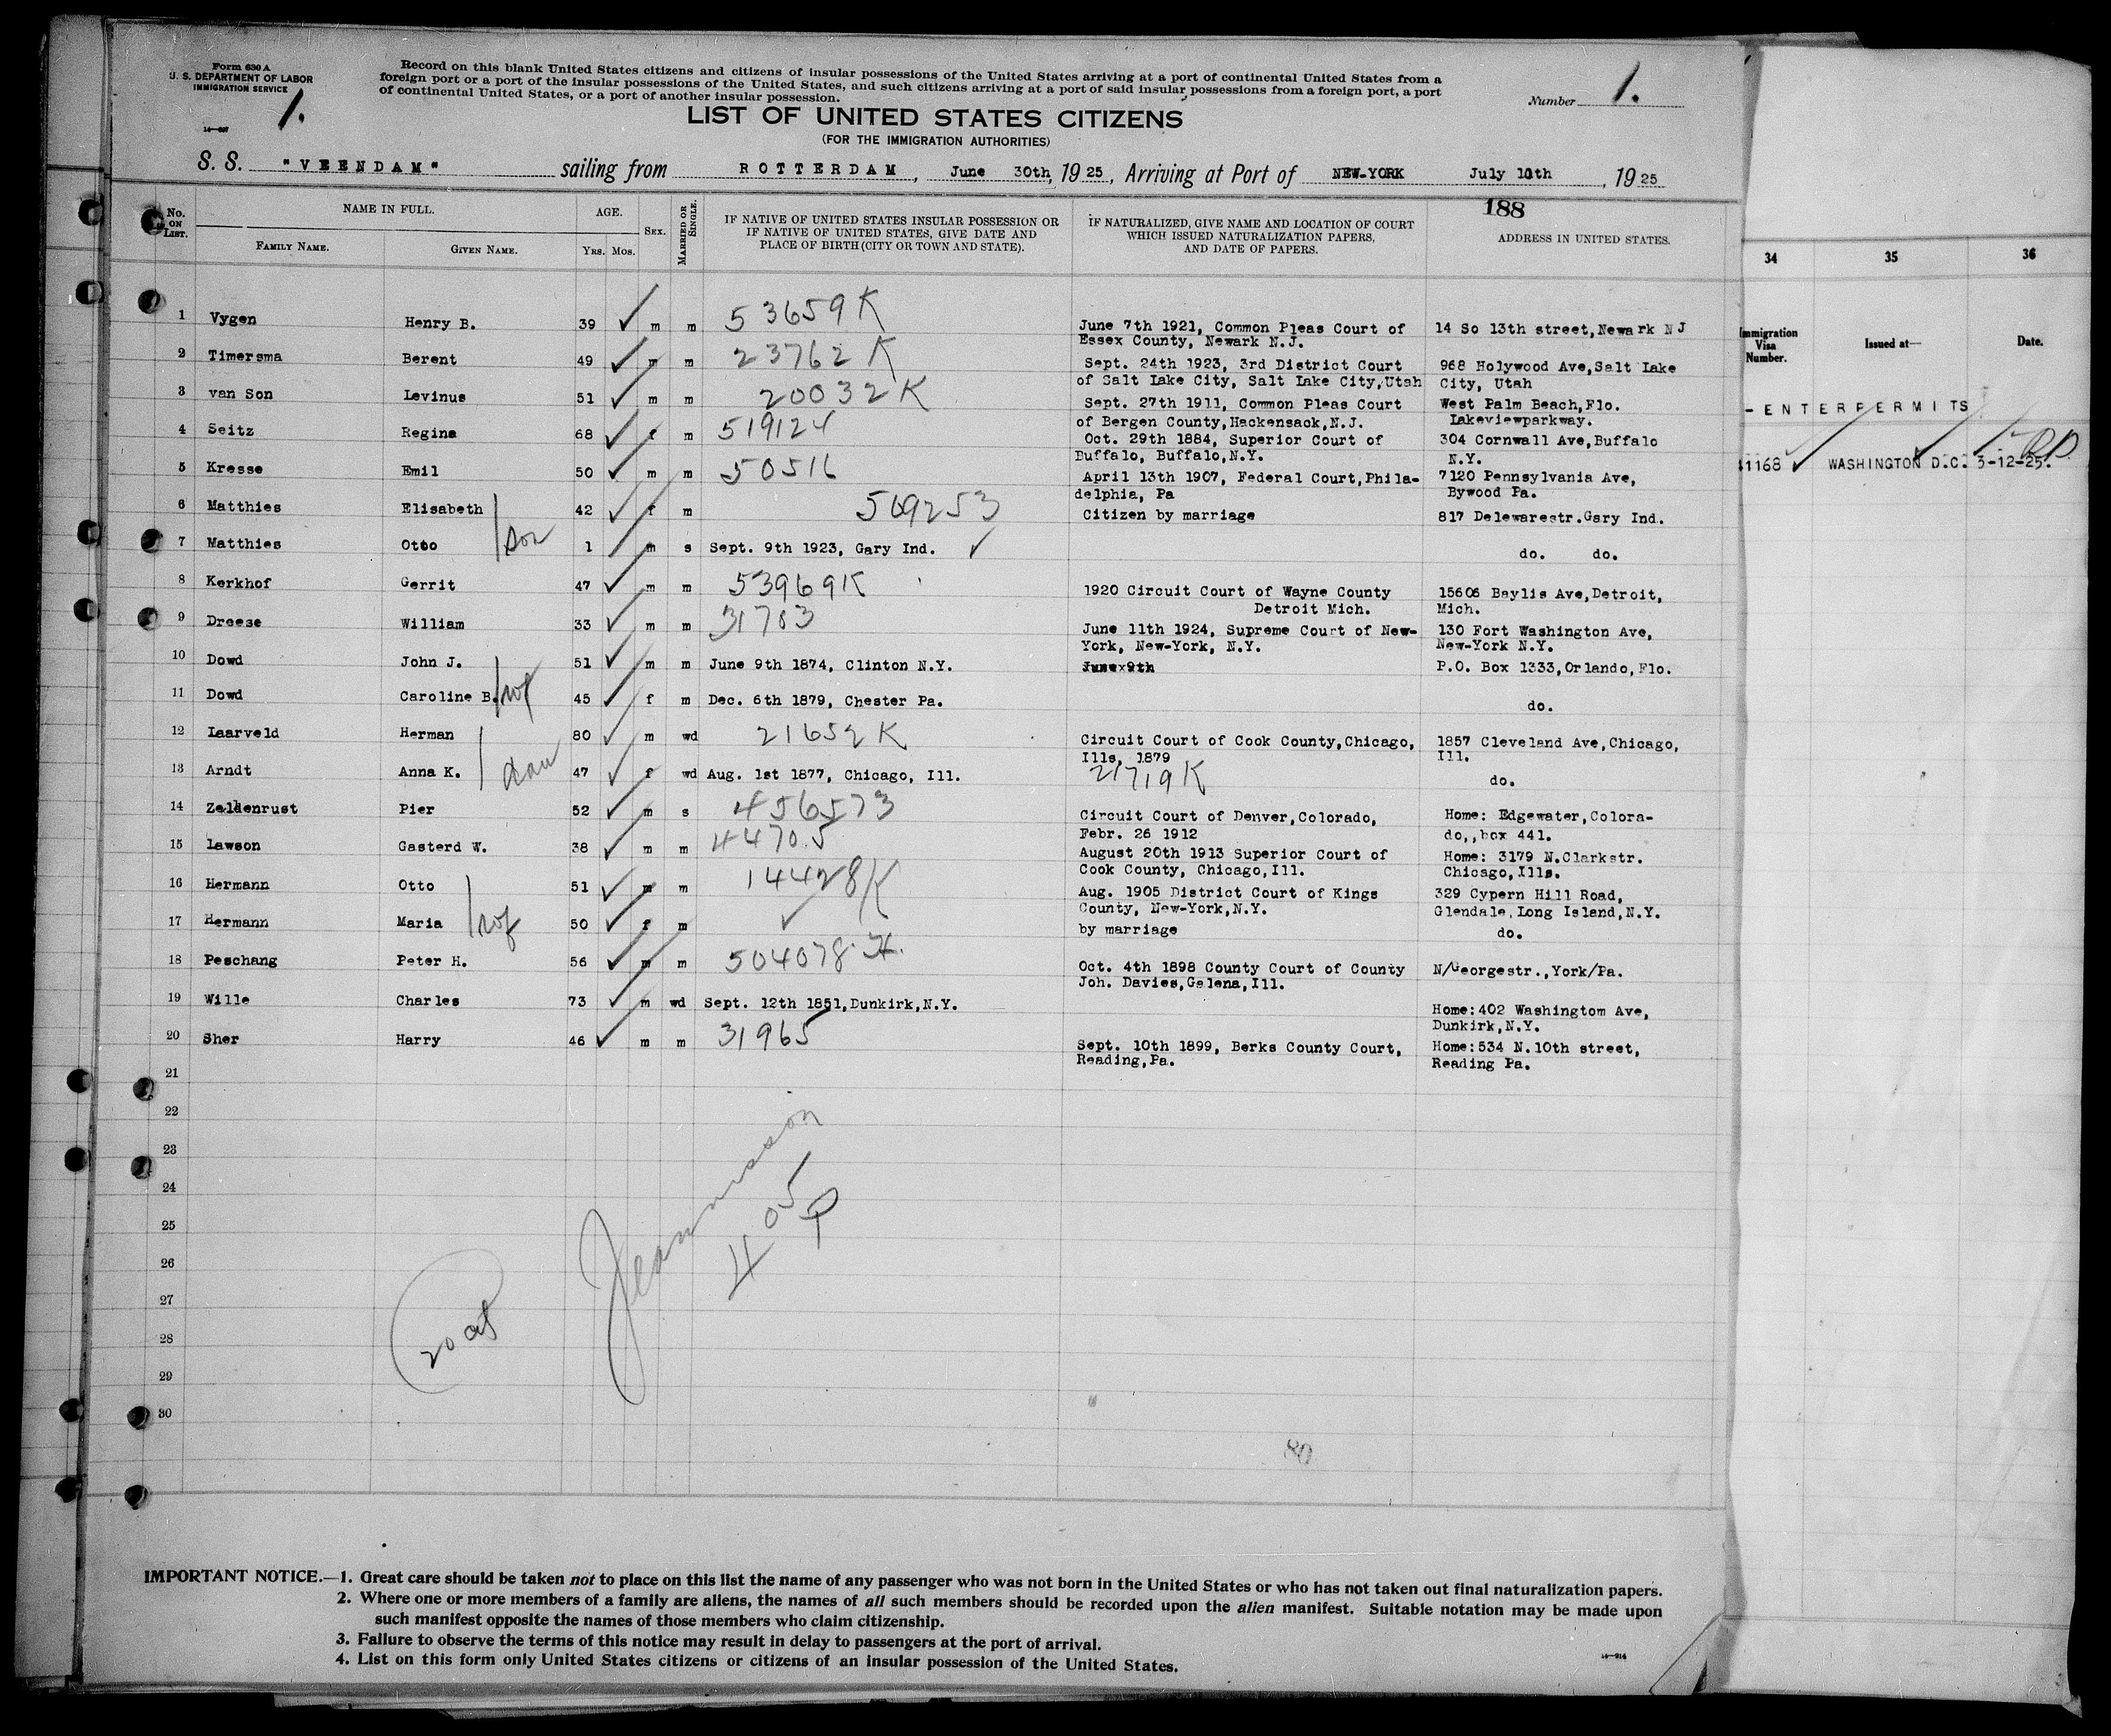 Form 630 A
U. S. DEPARTMENT OF LABOR
IMMIGRATION SERVICE
1.
14—627
Record on this blank United States citizens and citizens of insular possessions of the United States arriving at a port of continental United States from a
foreign port or a port of the insular possessions of the United States, and such citizens arriving at a port of said insular possessions from a foreign port, a port
of continental United States, or a port of another insular possession.
Number 1.
LIST OF UNITED STATES CITIZENS
(FOR THE IMMIGRATION AUTHORITIES)
S. S. "VEENDAM" sailing from ROTTERDAM, June 30th, 1925, Arriving at Port of NEW-YORK July 10th, 1925
188
No. ON LIST.
NAME IN FULL.
FAMILY NAME. GIVEN NAME.
AGE.
YRS. MOS.
SEX.
MARRIED OR SINGLE.
IF NATIVE OF UNITED STATES INSULAR POSSESSION OR
IF NATIVE OF UNITED STATES, GIVE DATE AND
PLACE OF BIRTH (CITY OR TOWN AND STATE).
IF NATURALIZED, GIVE NAME AND LOCATION OF COURT
WHICH ISSUED NATURALIZATION PAPERS,
AND DATE OF PAPERS.
ADDRESS IN UNITED STATES.
1 Vygen Henry B. 39 m m 53659K June 7th 1921, Common Pleas Court of 14 So 13th street,Newark N J
Essex County, Newark N.J.
2 Timersma Berent 49 m m 23762 K Sept. 24th 1923, 3rd District Court 968 Holywood Ave,Salt Lake
of Salt Lake City, Salt Lake City,Utah City, Utah
3 van Son Levinus 51 m m 20032K Sept. 27th 1911, Common Pleas Court West Palm Beach,Flo.
of Bergen County,Hackensack,N.J. Lakeviewparkway.
4 Seitz Regina 68 f m 519124 Oct. 29th 1884, Superior Court of 304 Cornwall Ave,Buffalo
Buffalo, Buffalo,N.Y. N.Y.
5 Kresse Emil 50 m m 50516 April 13th 1907, Federal Court,Phila- 7120 Pennsylvania Ave,
delphia, Pa Bywood Pa.
6 Matthies Elisabeth 42 f m 569253 Citizen by marriage 817 Delewarestr.Gary Ind.
7 Matthies Otto son 1 m s Sept. 9th 1923, Gary Ind. do. do.
8 Kerkhof Gerrit 47 m m 53969K 1920 Circuit Court of Wayne County 15606 Baylis Ave,Detroit,
Detroit Mich. Mich.
9 Dreese William 33 m m 31783 June 11th 1924, Supreme Court of New- 130 Fort Washington Ave,
York, New-York, N.Y. New-York N.Y.
10 Dowd John J. 51 m m June 9th 1874, Clinton N.Y. June 9th P.O. Box 1333,Orlando,Flo.
11 Dowd Caroline B. wf 45 f m Dec. 6th 1879, Chester Pa. do.
12 Laarveld Herman 80 m wd 21652K Circuit Court of Cook County,Chicago, 1857 Cleveland Ave,Chicago,
Ills, 1879 Ill.
13 Arndt Anna K. dau 47 f wd Aug. 1st 1877, Chicago, Ill. 21719K do.
14 Zeldenrust Pier 52 m s 456573 Circuit Court of Denver,Colorado, Home: Edgewater,Colora-
Febr. 26 1912 do,,box 441.
15 Lawson Gasterd W. 38 m m 44705 August 20th 1913 Superior Court of Home: 3179 N.Clarkstr.
Cook County, Chicago,Ill. Chicago,Ills.
16 Hermann Otto 51 m m 14428K Aug. 1905 District Court of Kings 329 Cypern Hill Road,
County, New-York,N.Y. Glendale,Long Island,N.Y.
17 Hermann Maria wf 50 f m by marriage do.
18 Peschang Peter H. 56 m m 504078 Oct. 4th 1898 County Court of County N/Georgestr.,York/Pa.
Joh. Davies,Galena,Ill.
19 Wille Charles 73 m wd Sept. 12th 1851,Dunkirk,N.Y. Home:402 Washingtom Ave,
Dunkirk,N.Y.
20 Sher Harry 46 m m 31965 Sept. 10th 1899, Berks County Court, Home:534 N.10th street,
Reading,Pa. Reading Pa.
21
22
23
24
25
26
27
28
29
30
405
80
34 35 36
Immigration
Visa
Number.
Issued at—
Date.
-ENTERPERMITS
1168 WASHINGTON D.C. 3-12-25.
IMPORTANT NOTICE.—1. Great care should be taken not to place on this list the name of any passenger who was not born in the United States or who has not taken out final naturalization papers.
2. Where one or more members of a family are aliens, the names of all such members should be recorded upon the alien manifest. Suitable notation may be made upon
such manifest opposite the names of those members who claim citizenship.
3. Failure to observe the terms of this notice may result in delay to passengers at the port of arrival.
4. List on this form only United States citizens or citizens of an insular possession of the United States.
14—214